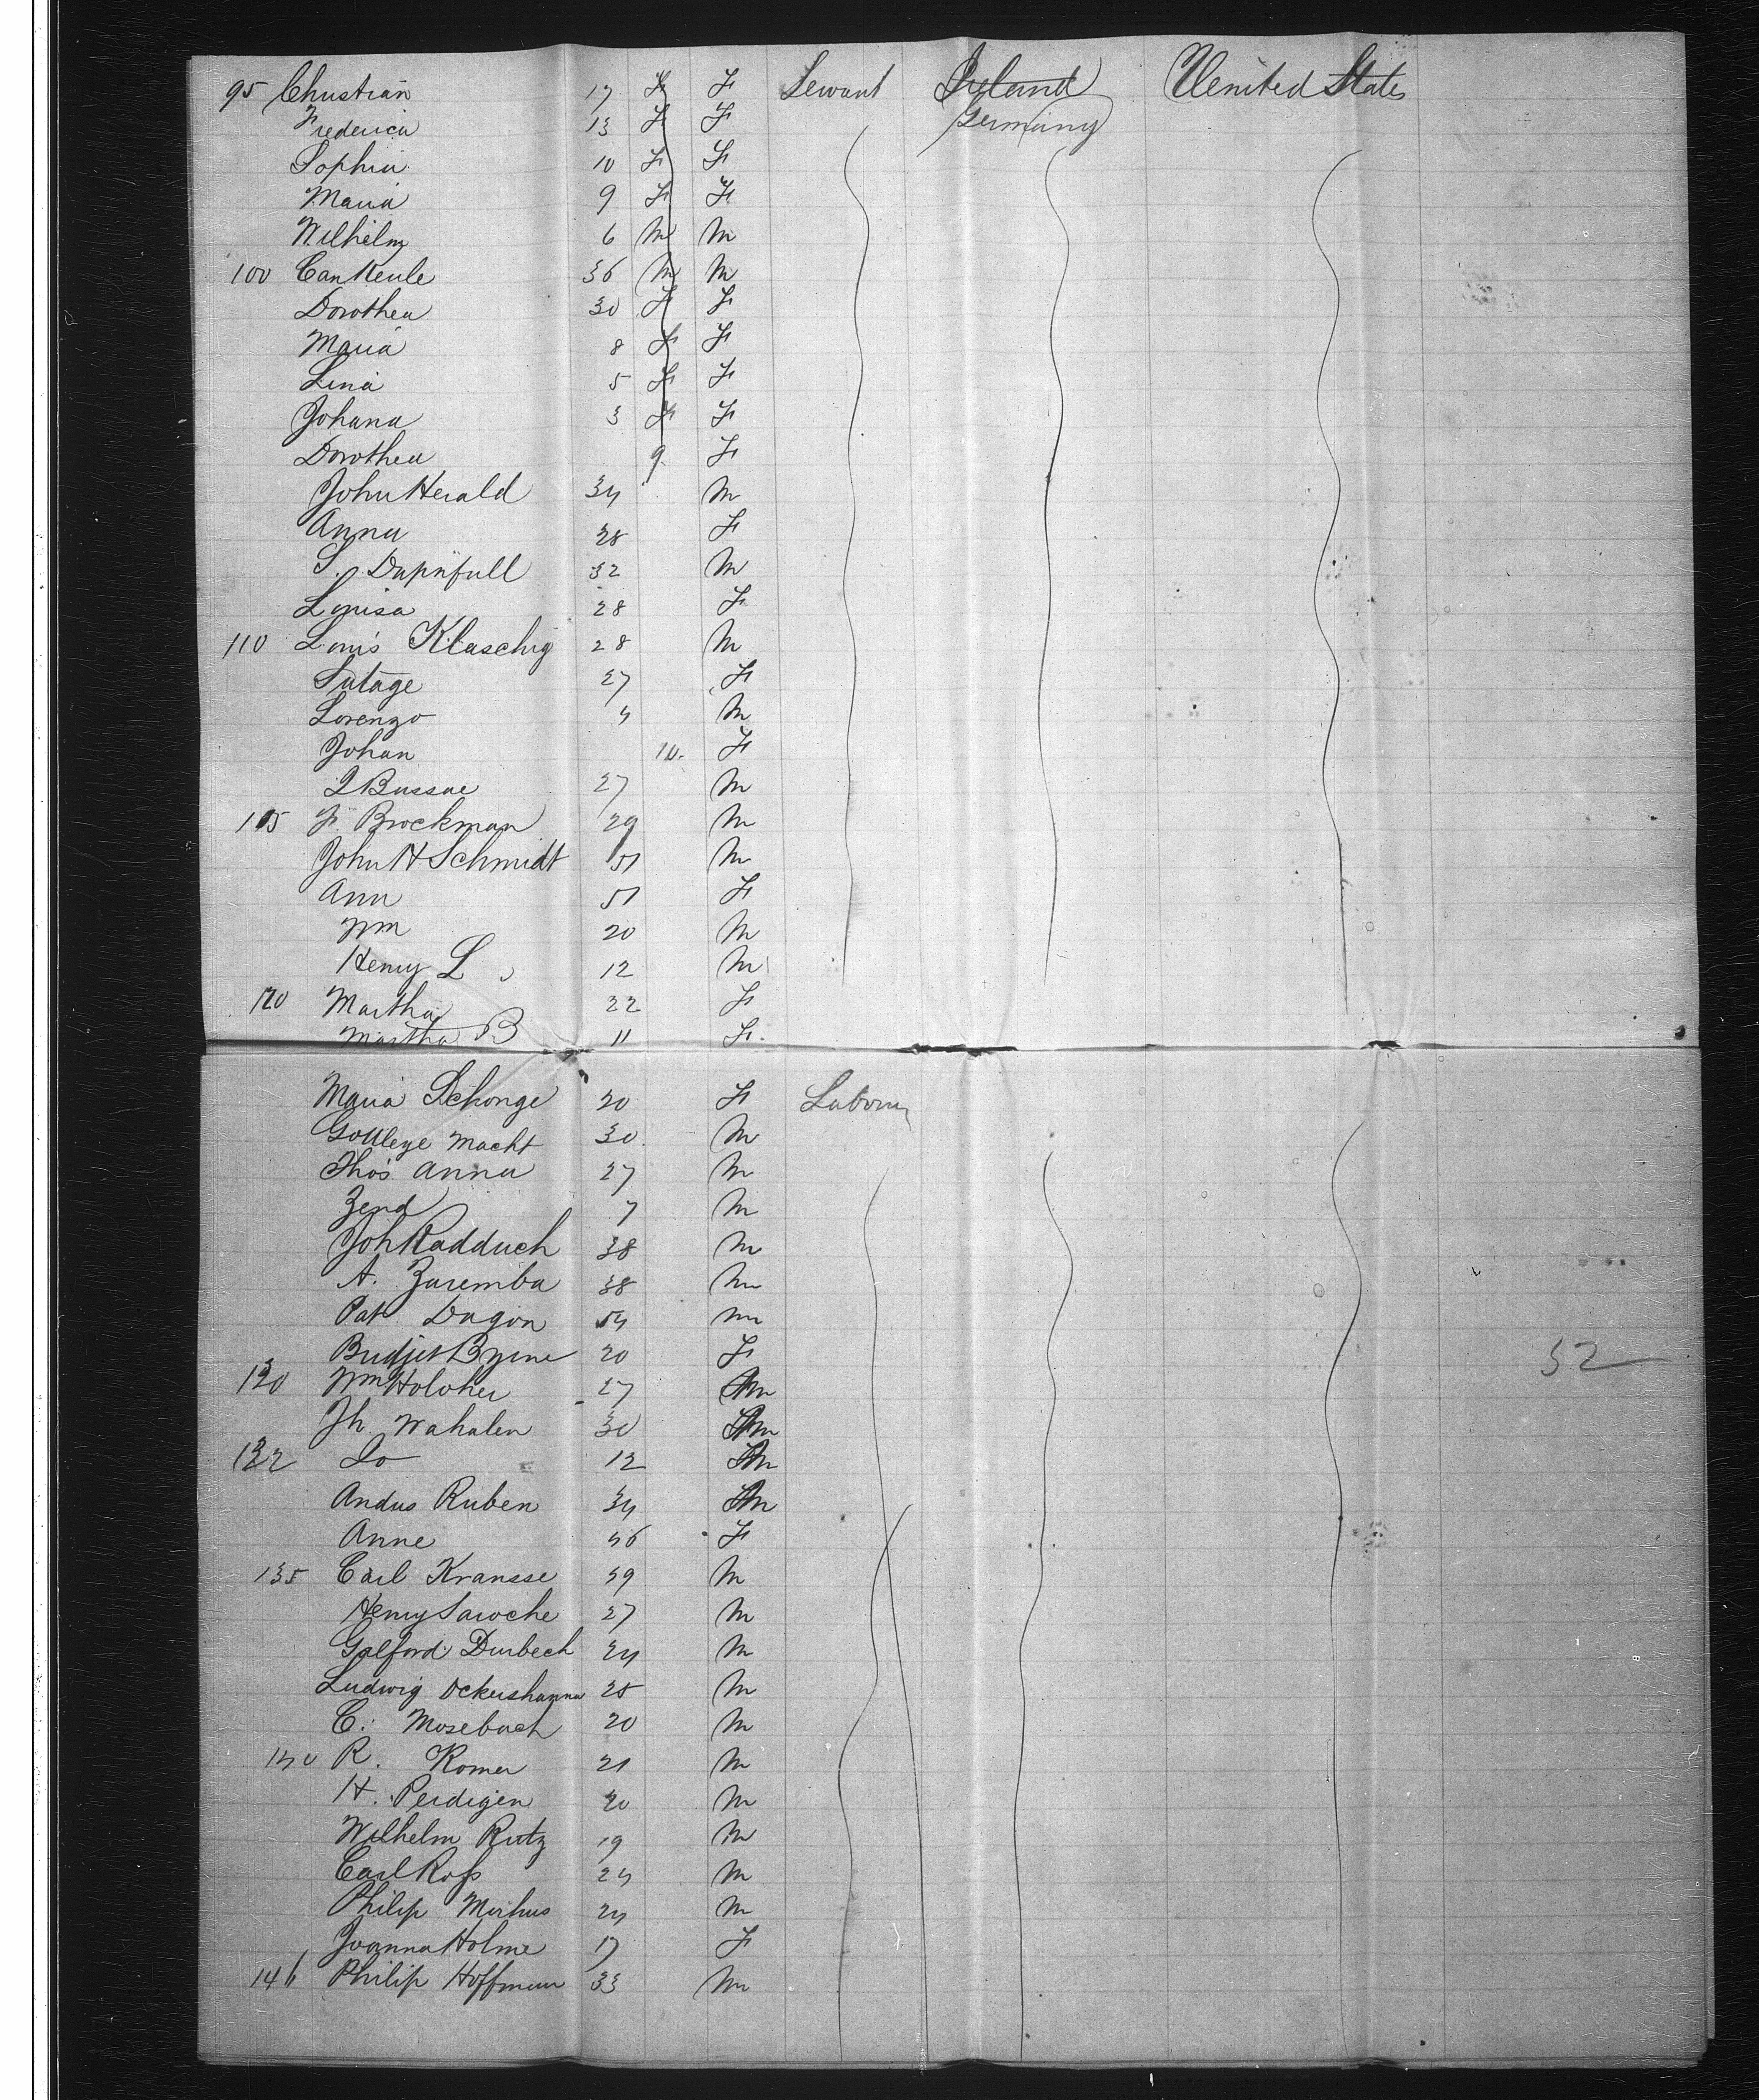 95 Christian 17 F F Servant Ireland United States
Frederica 13 F F Germany
Sophia 10 F F
Maria 9 F F
Wilhelm 6 M M
100 Carl Keule 36 M M
Dorothea 30 F F
Maria 8 F F
Lina 5 F F
Johana 3 F F
Dorothea 9 F
John Herald 34 M
Anna 28 F
S. 32 M
Louisa 28 F
110 Louis Klaschig 28 M
27 F
Lorenzo 4 M
Johan 10. F
Bussae 27 M
115 F. Brockman 29 M
John H Schmidt 51 M
Ann 51 F
Wm 20 M
Henry L 12 M
120 Martha 22 F
Martha B 11 F.
Maria Schonge 20 F Laborer
Macht 30 M
Thos Anna 27 M
Zend 7 M
Joh Radduch 38 M
A. Zaremba 38 M
Pat Dagon 54 M
Bridjet Byrne 20 F
130 Wm Holoher 27 M
Jh Wahalen 30 M
132 Do 12 M
Andus Ruben 34 M
Anne 46 F
135 Carl Kransse 39 M
Henry Saroche 27 M
Galford Durbech 24 M
Ludwig 25 M
C. Mosebach 20 M
140 R. Romer 21 M
H. Perdigen 20 M
Wilhelm Rutz 19 M
Carl Ross 24 M
Philip Morhus 24 M
Joanna Holme 17 F
146 Philip Hoffman 33 M
52